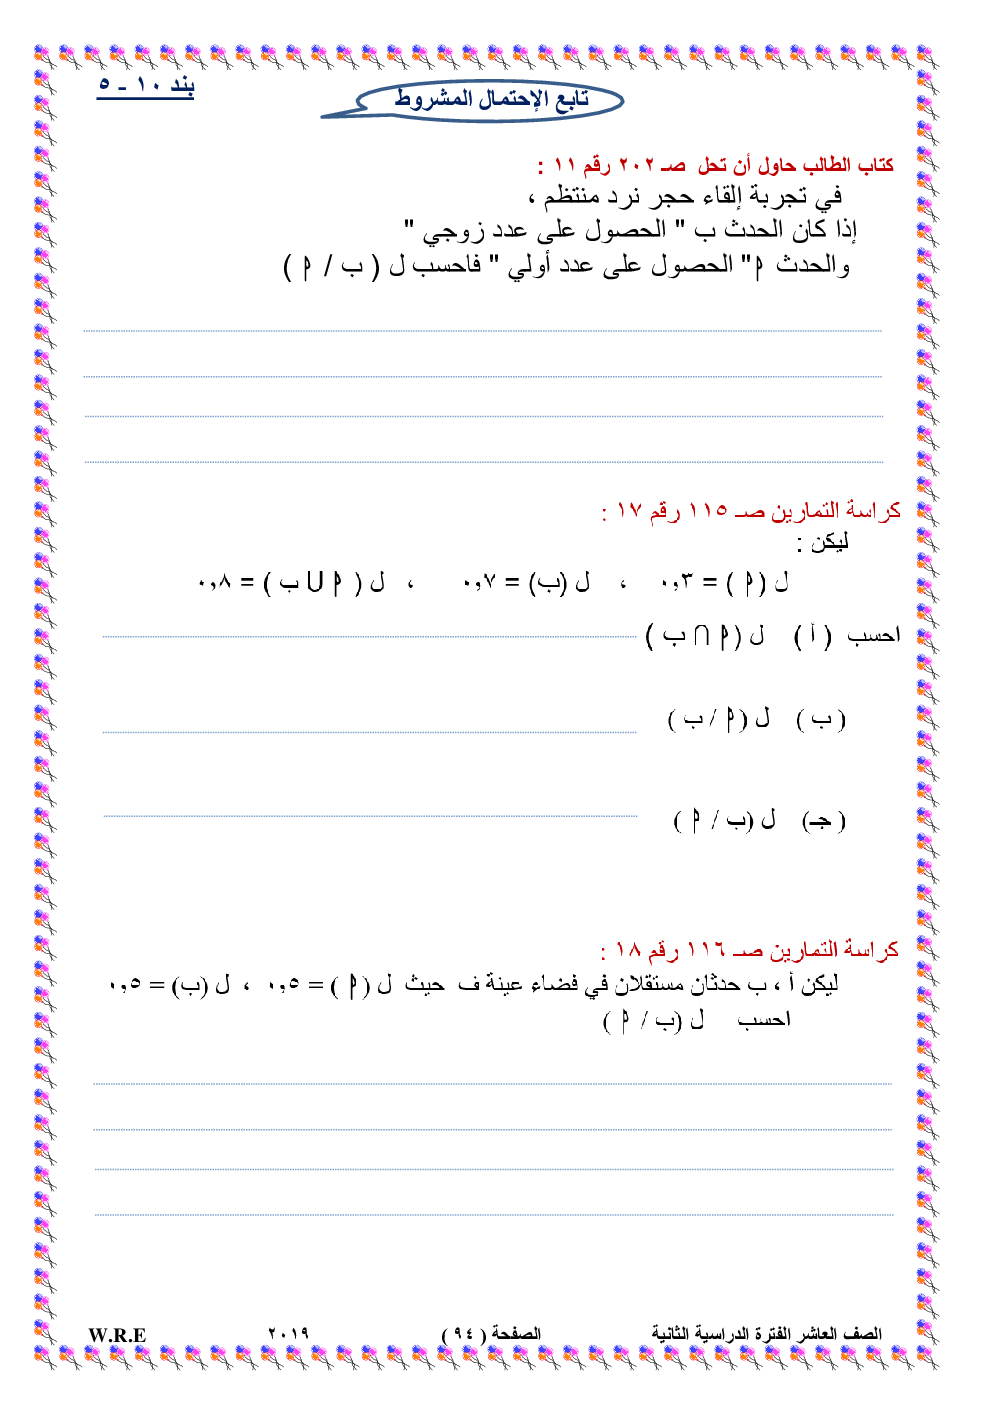 بند ١٠ - ٥
تابع الإحتمال المشروط
كتاب الطالب حاول أن تحل صـ ٢٠٢ رقم ١١ :
في تجربة إلقاء حجر نرد منتظم ،
إذا كان الحدث ب " الحصول على عدد زوجي "
والحدث أ " الحصول على عدد أولي " فاحسب ل ( ب / أ )
كراسة التمارين صـ ١١٥ رقم ١٧ :
ليكن :
ل ( أ ) = ٠,٣ ، ل (ب) = ٠,٧ ، ل ( أ ∪ ب ) = ٠,٨
احسب ( أ ) ل ( أ ∩ ب )
( ب ) ل ( أ / ب )
( جـ) ل (ب / أ )
كراسة التمارين صـ ١١٦ رقم ١٨ :
ليكن أ ، ب حدثان مستقلان في فضاء عينة ف حيث ل ( أ ) = ٠,٥ ، ل (ب) = ٠,٥
احسب ل (ب / أ )
الصف العاشر الفترة الدراسية الثانية الصفحة ( ٩٤ ) ٢٠١٩ W.R.E